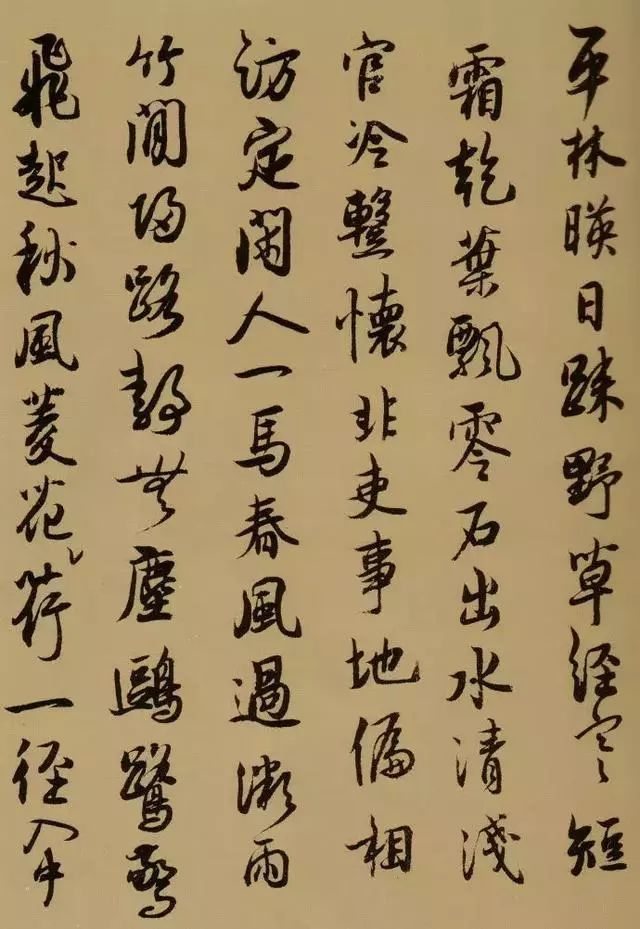 平林暎日踈野草經寒短
霜乾葉飄零石出水清淺
官冷繫懷非吏事地偏相
訪定閑人一馬春風過微雨
竹間歸路静無塵鷗鷺驚
飛起秋風菱花荇一徑入中